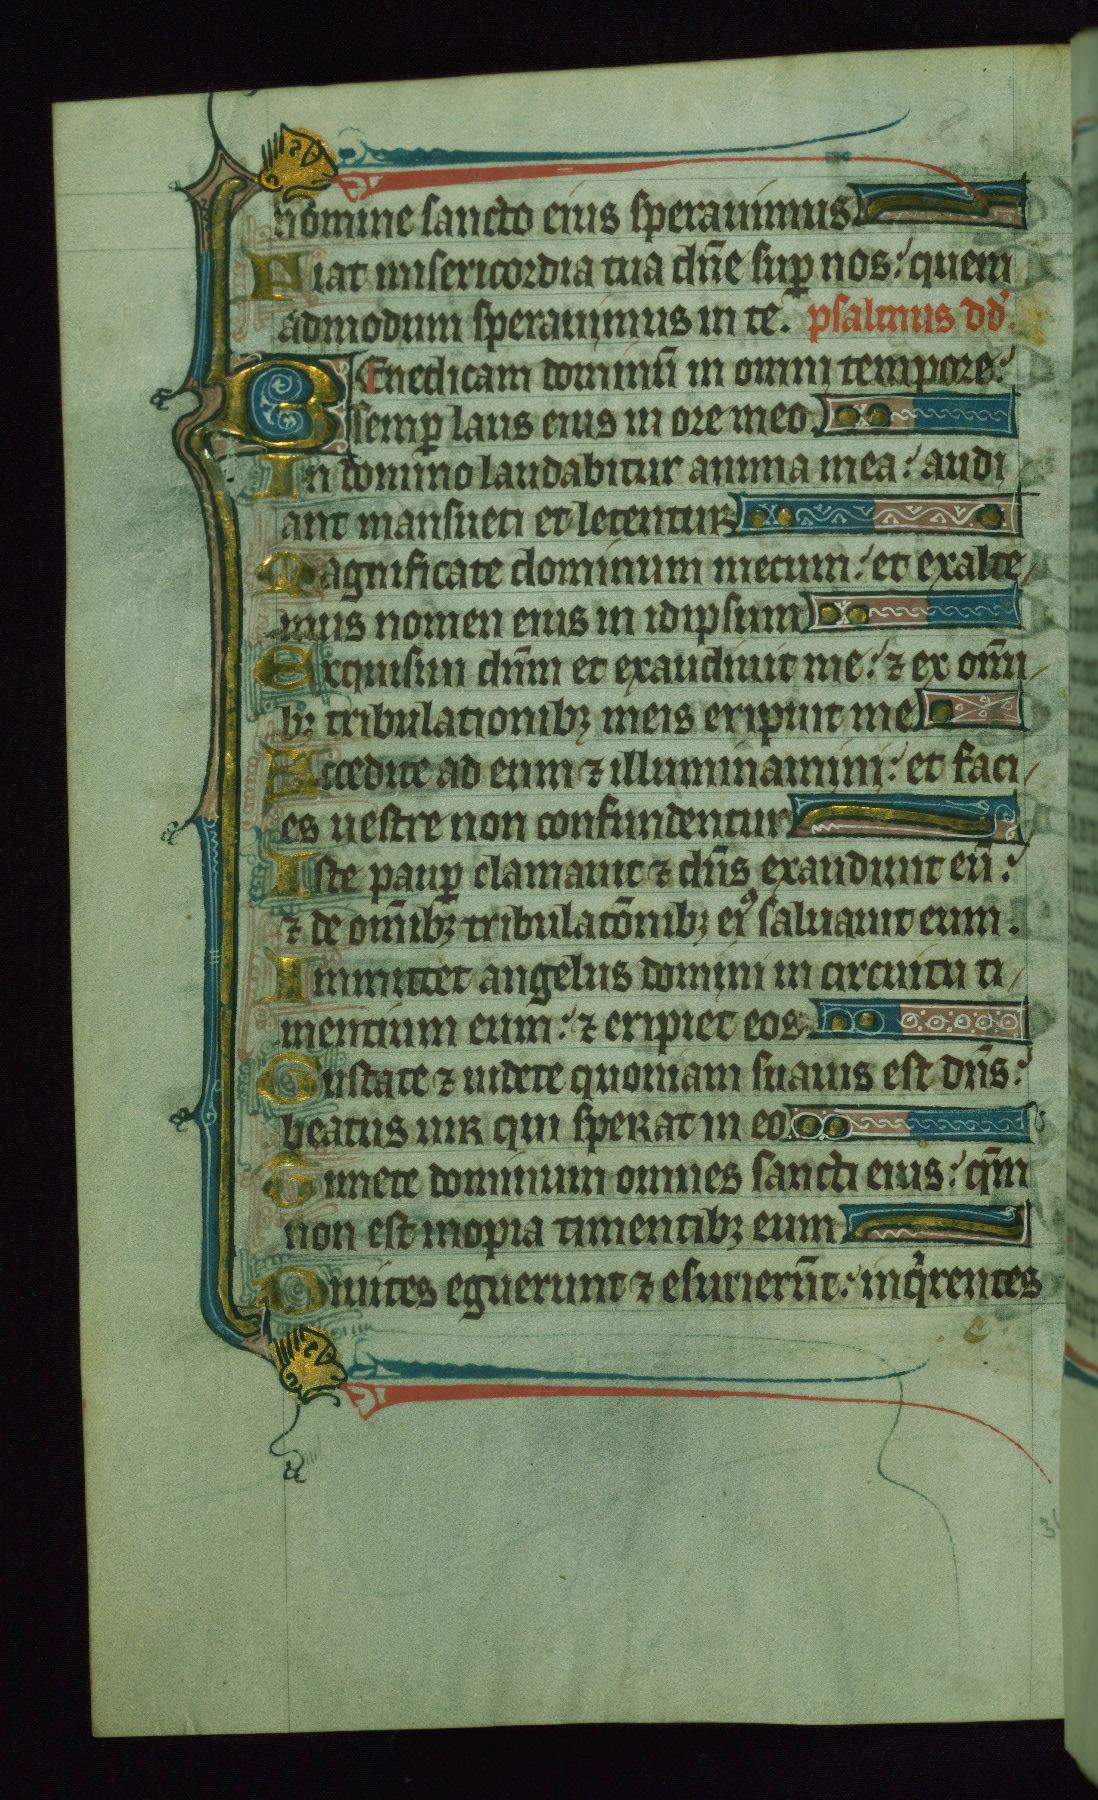 nomine sancto eius sperauimus
Fiat misericordia tua dn̄e sup̱ nos: quem
admodum sperauimus in te. psalmus dd̄.
BEnedicam dominū in omni tempore:
semp̱ laus eius in ore meo.
In domino laudabitur anima mea: audi
ant mansueti et letentur
Magnificate dominum mecum: et exalte
mus nomen eius in idipsum
Exquisiui dn̄m et exaudiuit me: ⁊ ex om̄i
bꝫ tribulationibꝫ meis eripuit me
Accedite ad eum ⁊ illuminamini: et faci
es uestre non confundentur
Iste paup̱ clamauit ⁊ dn̄s exaudiuit eū:
⁊ de om̄ibꝫ tribulatōnibꝫ eiꝰ saluauit eum.
Inmittet angelus domini in circuitu ti
mentium eum: ⁊ eripiet eos
Gustate ⁊ uidete quoniam suauis est dn̄s:
beatus uir qui sperat in eo
Timete dominum omnes sancti eius: qm̄
non est inopia timentibꝫ eum
Diuites eguerunt ⁊ esurierūt: inqͥrentes